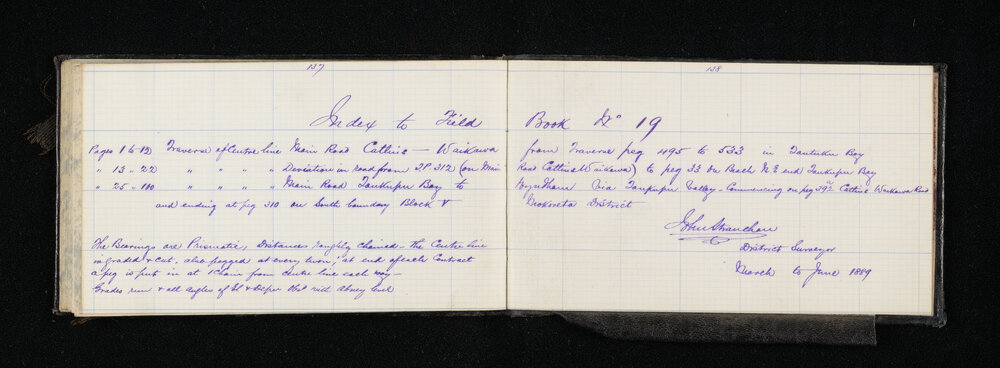 137
138
Index to Field Book No 19
Pages 1 to 12 Traverse of Centre line Main Road Catlins — Waikawa from Traverse peg 495 to 533 in Tautuku Bay
" 13 " 22 " " " " Deviation in road from T.P. 312 (on Main Road Catlins Waikawa) to peg 33 on Beach N.E end Tautuku Bay
" 25 " 110 " " " " Main Road Tautuku Bay to Wyndham via Tautuku Valley - Commencing on peg Catlins Waikawa Road
and ending at peg 310 on South boundary Block V District
John Strauchon
District Surveyor
March to June 1889
The Bearings are Prismatic, Distances roughly chained - the Centre line
is graded & cut, also pegged at every turn; at end of each Contract
a peg is put in at 1 Chain from Centre line each way —
Grades run & all angles of El & Depn Obsd with Abney level